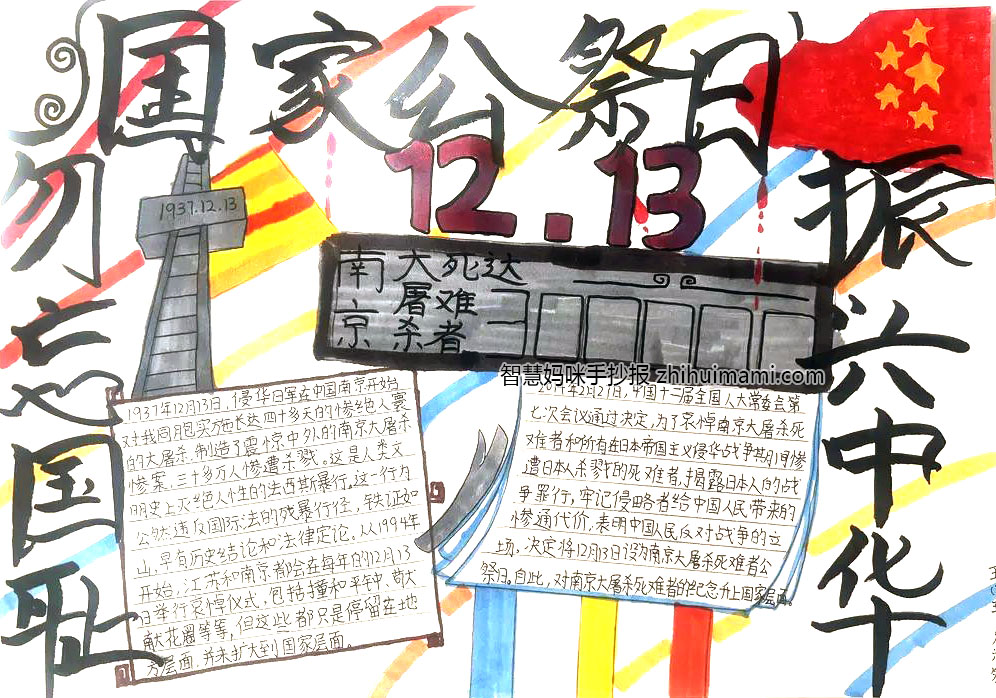 国家公祭日
12.13
勿忘国耻
振兴中华
1937.12.13
南京
大屠杀
死难者
达
智慧妈咪手抄报 zhihuimami.com
1937年12月13日,侵华日军在中国南京开始
对我同胞实施长达四十多天的惨绝人寰
的大屠杀,制造了震惊中外的南京大屠杀
惨案,三十多万人惨遭杀戮。这是人类文
明史上灭绝人性的法西斯暴行。这一行为
公然违反国际法的残暴行径,铁证如
山,早有历史结论和法律定论。从1994年
开始,江苏和南京都会在每年的12月13
日举行哀悼仪式,包括撞和平钟,敬
献花圈等等,但这些都只是停留在地
方层面,并未扩大到国家层面。
2014年2月27日,中国十二届全国人大常委会第
七次会议通过决定,为了哀悼南京大屠杀死
难者和所有在日本帝国主义侵华战争期间惨
遭日本人杀戮的死难者,揭露日本人的战
争罪行,牢记侵略者给中国人民带来的
惨通代价,表明中国人民反对战争的立
场,决定将12月13日设为南京大屠杀死难者公
祭日。自此,对南京大屠杀死难者的纪念升上国家层面。